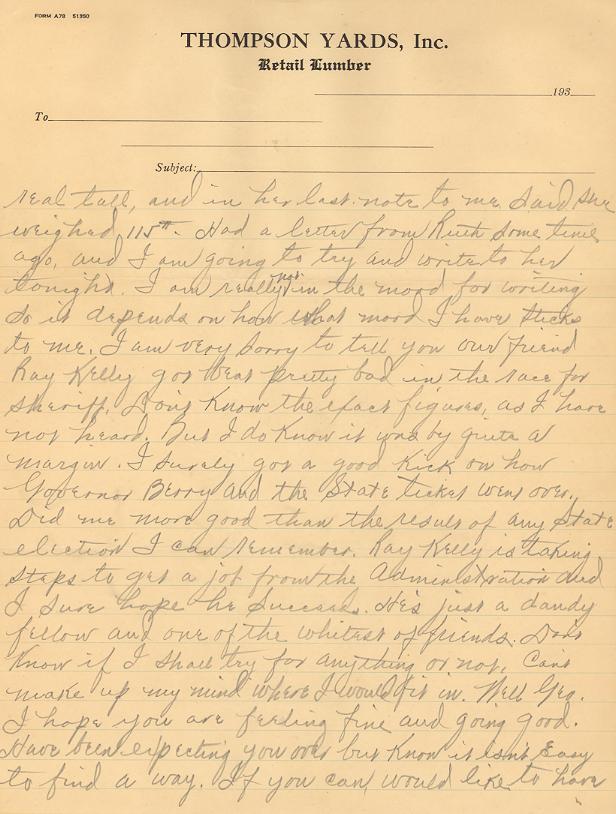 FORM A78 51350
THOMPSON YARDS, Inc.
Retail Lumber
193
To
Subject:
real tall, and in her last note to me said she
weighed 115#. Had a letter from Ruth some time
ago, and I am going to try and write to her
tonight. I am really just in the mood for writing
so it depends on how what mood I have sticks
to me. I am very sorry to tell you our friend
Ray Kelly got beat pretty bad in the race for
sheriff. Don't know the exact figures, as I have
not heard. But I do know it was by quite a
margin. I surely got a good kick on how
Governor Berry and the State ticket went over.
Did me more good than the result of any State
election I can remember. Ray Kelly is taking
steps to get a job from the Administration and
I sure hope he success. He's just a dandy
fellow and one of the whitest of friends. Don't
know if I shall try for anything or not. Can't
make up my mind where I would fit in. Well Geo.
I hope you are feeding fine and going good.
Have been expecting you over but know it isn't easy
to find a way. If you can, would like to have